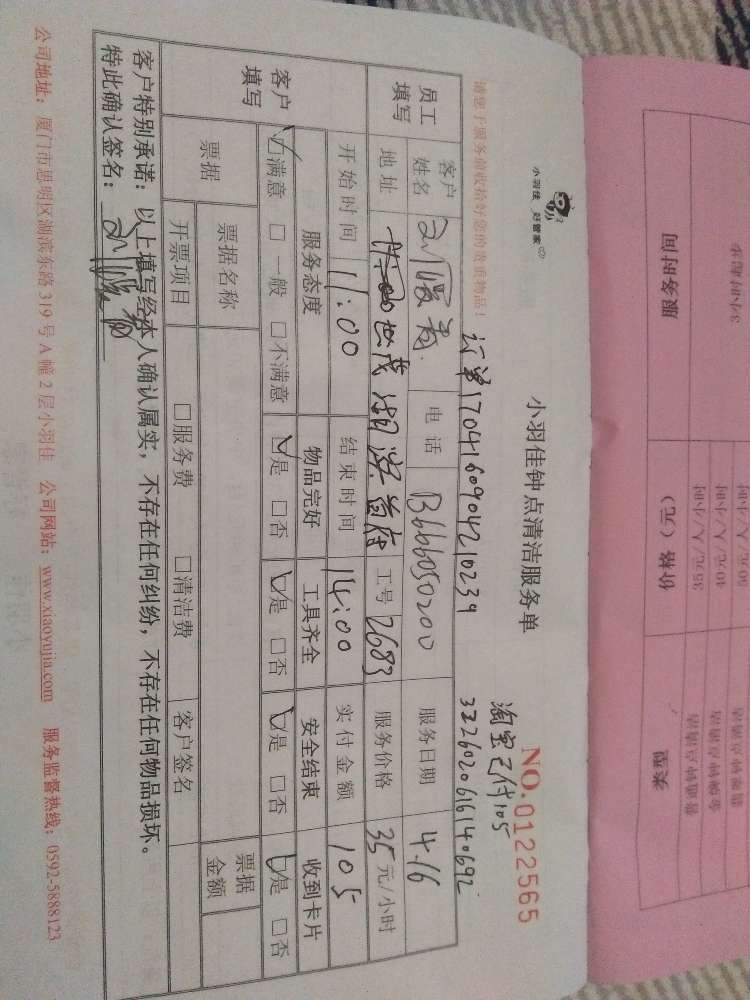 小羽佳 好管家
小羽佳钟点清洁服务单
NO.0122565
淘宝已付105
请您于服务前收拾好您的贵重物品！
订单1704160904210234
3226020616140692
员工填写
客户姓名
电话 13666050200
服务日期 4.16
地址
世茂湖滨首府
工号 2683
服务价格 35元/小时
开始时间 11:00
结束时间 14:00
实付金额 105
客户填写
服务态度
物品完好
工具齐全
安全结束
收到卡片
☑满意 □一般 □不满意
☑是 □否
☑是 □否
☑是 □否
☑是 □否
票据
票据名称
票据金额
开票项目
□服务费 □清洁费
客户签名
客户特别承诺：以上填写经本人确认属实，不存在任何纠纷，不存在任何物品损坏。
特此确认签名：
公司地址：厦门市思明区湖滨东路319号A幢2层小羽佳 公司网站：www.xiaoyujia.com 服务监督热线：0592-5888123
服务时间
价格（元）
类型
35元/人/小时
40元/人/小时